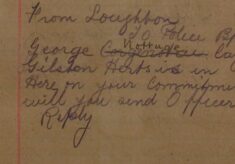 From Loughton
To Police B
George Nottage la
Gilston Herts is in
Here on your Commitm
will you send Officer
Reply